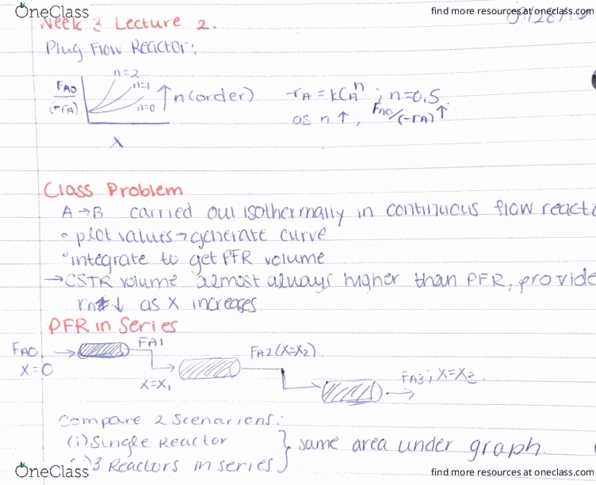 OneClass
find more resources at oneclass.com
Week 3 Lecture 2.
Plug Flow Reactor:
FA0
(-rA)
n=2
n=1
n=0
↑n(order)
X
-rA = kCA^n ; n=0.5
as n↑, FA0/(-rA)↑
Class Problem
A→B carried out isothermally in continuous flow reacto
• plot values → generate curve
• integrate to get PFR volume
→ CSTR volume almost always higher than PFR, provide
↓ as X increases
PFR in Series
FA0
X=0
FA1
X=X1
FA2 (X=X2)
FA3; X=X3.
Compare 2 Scenarions:
(i) Single Reactor
) 3 Reactors in series
} same area under graph.
OneClass
find more resources at oneclass.com